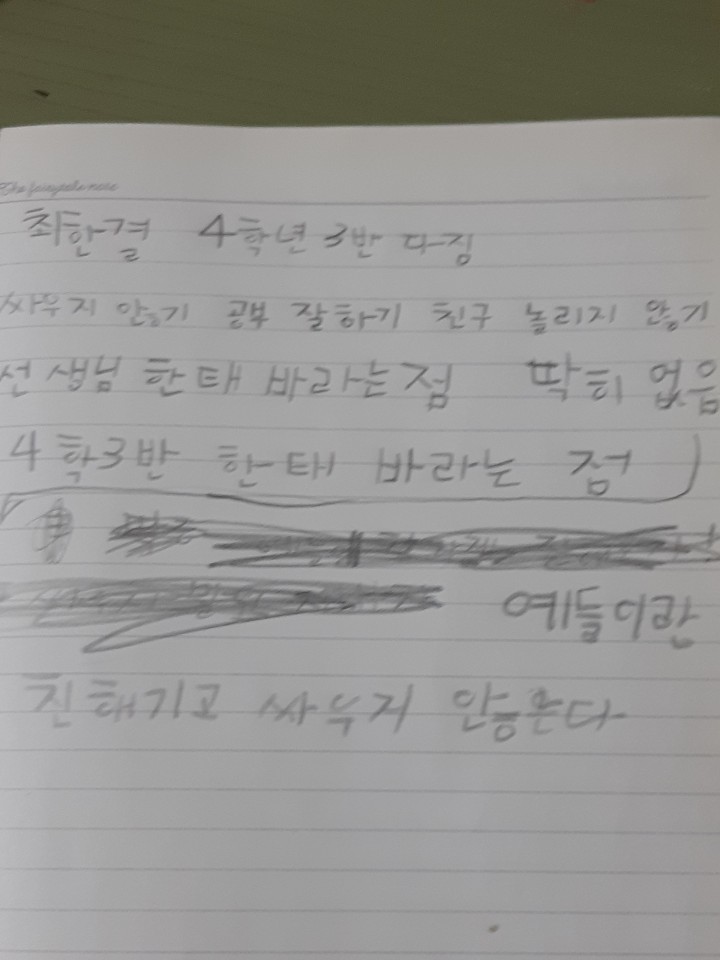 최한결 4학년 3반 다짐
싸우지 안능기 공부 잘하기 친구 놀리지 안능기
선생님 한태 바라는점 딱히 없음
4학3반 한태 바라는 점
예들이랑
친해기고 싸우지 안능은다